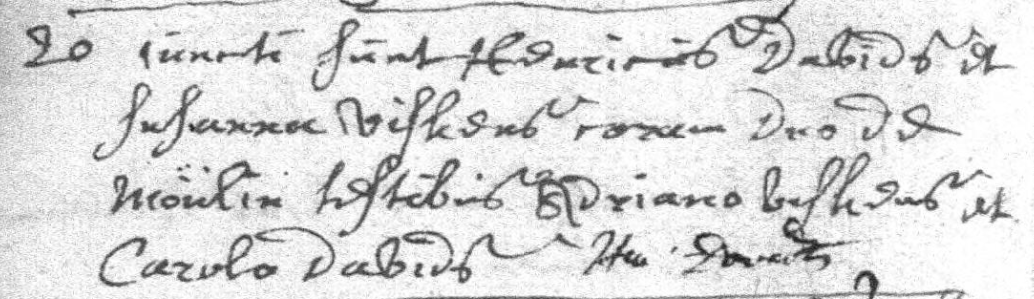 20 iuncti sunt Henricus Davids et
Susanna Viskens coram Dno de
Möulin testibus Adriano Viskens et
Carolo Davids